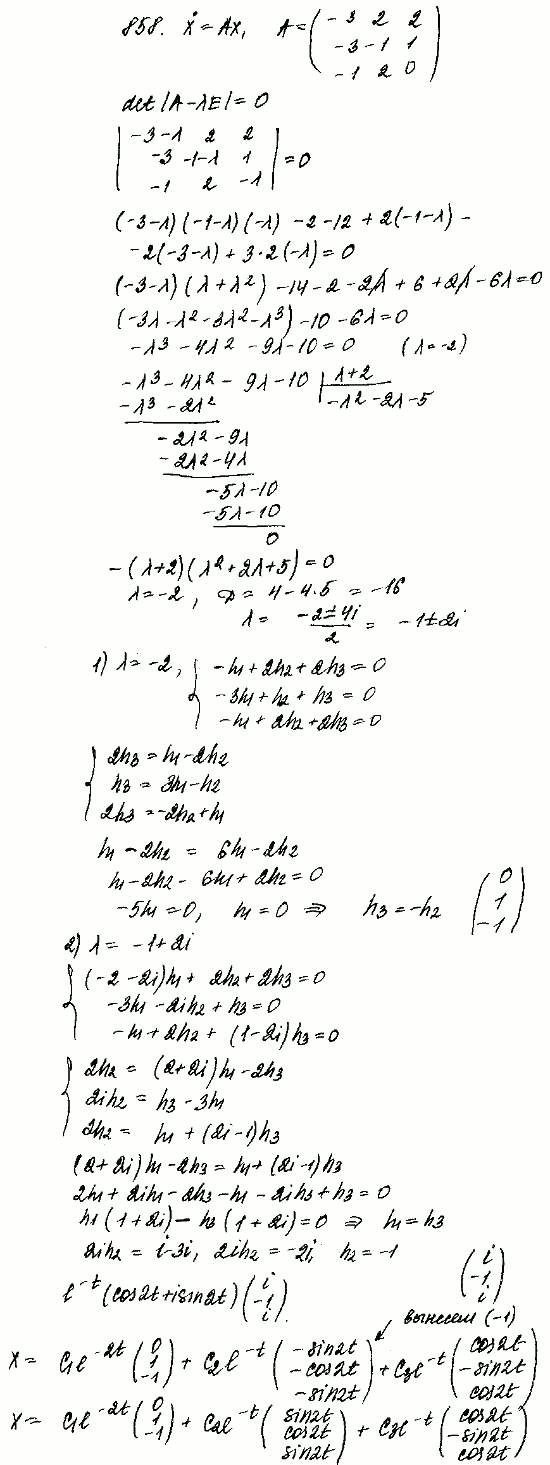 858. ẋ = Ax, A = ( -3 2 2
-3 -1 1
-1 2 0 )
det |A - λE| = 0
| -3-λ 2 2
-3 -1-λ 1
-1 2 -λ | = 0
(-3-λ)(-1-λ)(-λ) -2-12 + 2(-1-λ) -
-2(-3-λ) + 3·2(-λ) = 0
(-3-λ)(λ+λ²) -14 -2 -2λ + 6 + 2λ -6λ = 0
(-3λ-λ²-3λ²-λ³) -10 -6λ = 0
-λ³ - 4λ² - 9λ - 10 = 0 (λ = -2)
-λ³ - 4λ² - 9λ - 10 | λ+2
-λ³ - 2λ² -λ² - 2λ - 5
-2λ² - 9λ
-2λ² - 4λ
-5λ - 10
-5λ - 10
0
-(λ+2)(λ²+2λ+5) = 0
λ = -2, D = 4 - 4·5 = -16
λ = (-2±4i)/2 = -1±2i
1) λ = -2, { -h1 + 2h2 + 2h3 = 0
-3h1 + h2 + h3 = 0
-h1 + 2h2 + 2h3 = 0
{ 2h3 = h1 - 2h2
h3 = 3h1 - h2
2h3 = -2h2 + h1
h1 - 2h2 = 6h1 - 2h2
h1 - 2h2 - 6h1 + 2h2 = 0
-5h1 = 0, h1 = 0 ⇒ h3 = -h2 ( 0
1
-1 )
2) λ = -1+2i
{ (-2-2i)h1 + 2h2 + 2h3 = 0
-3h1 - 2ih2 + h3 = 0
-h1 + 2h2 + (1-2i)h3 = 0
{ 2h2 = (2+2i)h1 - 2h3
2ih2 = h3 - 3h1
2h2 = h1 + (2i-1)h3
(2+2i)h1 - 2h3 = h1 + (2i-1)h3
2h1 + 2ih1 - 2h3 - h1 - 2ih3 + h3 = 0
h1(1+2i) - h3(1+2i) = 0 ⇒ h1 = h3
2ih2 = i-3i, 2ih2 = -2i, h2 = -1 ( i
-1
i )
e^-t (cos2t + isin2t) ( i
-1
i ).
вынесем (-1)
x = C1e^-2t ( 0
1
-1 ) + C2e^-t ( -sin2t
-cos2t
-sin2t ) + C3e^-t ( cos2t
-sin2t
cos2t )
x = C1e^-2t ( 0
1
-1 ) + C2e^-t ( sin2t
cos2t
sin2t ) + C3e^-t ( cos2t
-sin2t
cos2t )